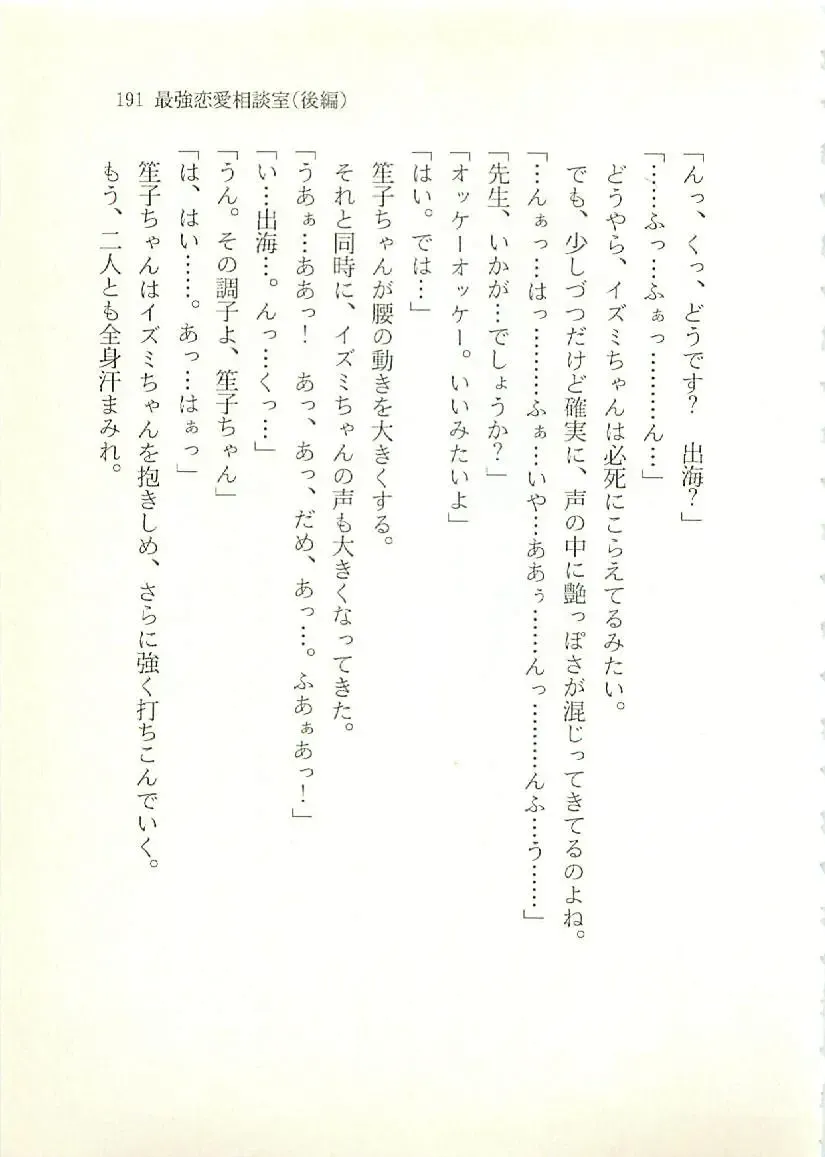 191 最強恋愛相談室(後編)
「んっ、くっ、どうです？　出海？」
「……ふっ…ふぁっ…………ん…」
どうやら、イズミちゃんは必死にこらえてるみたい。
でも、少しづつだけど確実に、声の中に艶っぽさが混じってきてるのよね。
「…んぁっ…はっ………ふぁ…いや…ああぅ……んっ…………んふ…う……」
「先生、いかが…でしょうか？」
「オッケーオッケー。いいみたいよ」
「はい。では…」
笙子ちゃんが腰の動きを大きくする。
それと同時に、イズミちゃんの声も大きくなってきた。
「うあぁ…ああっ！　あっ、あっ、だめ、あっ…。ふあぁあっ！」
「い…出海…。んっ…くっ…」
「うん。その調子よ、笙子ちゃん」
「は、はい……。あっ…はぁっ」
笙子ちゃんはイズミちゃんを抱きしめ、さらに強く打ちこんでいく。
もう、二人とも全身汗まみれ。